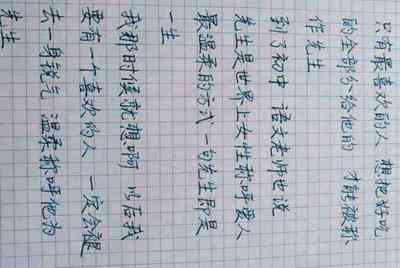 只有最喜欢的人 想把好吃
的全部分给他的 才能被称
作先生
到了初中 语文老师也说
先生是世界上女性称呼爱人
最温柔的方式 一句先生即是
一生
我那时候就想啊 以后我
要有一个喜欢的人 一定会褪
去一身锐气 温柔称呼他为
先生